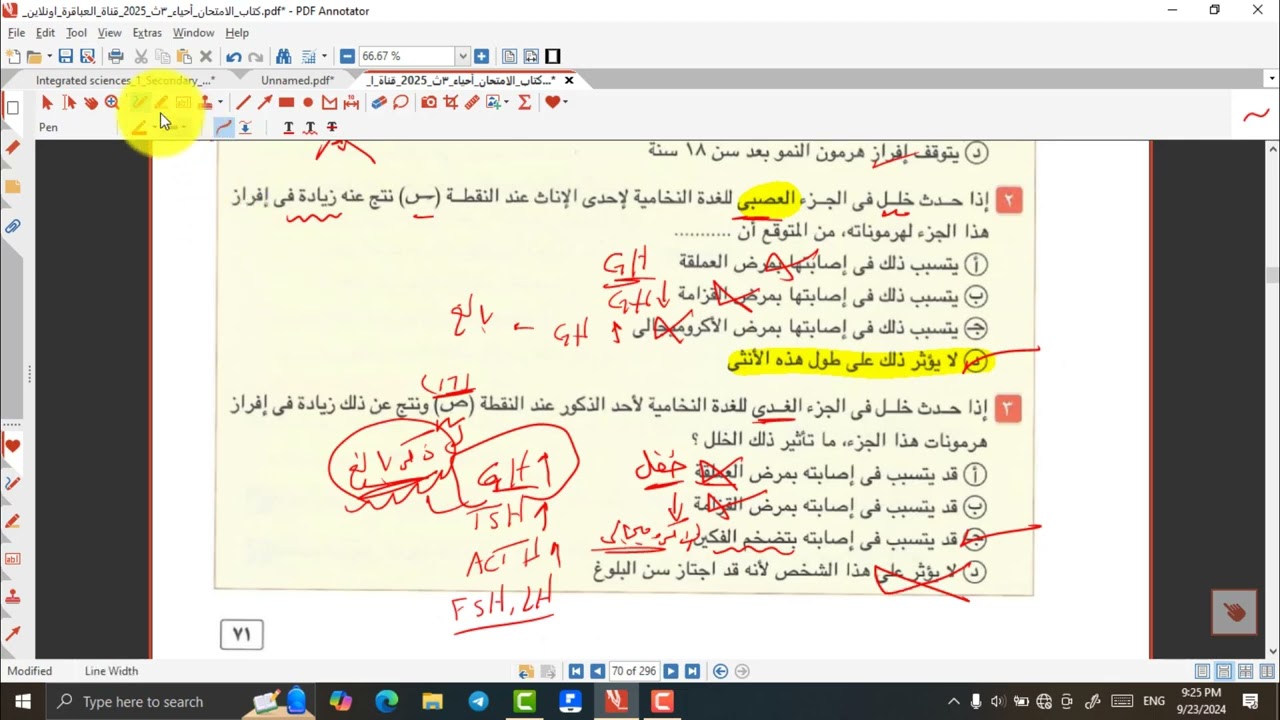 _كتاب_الامتحان_أحياء_٣ث_2025_قناة_العباقرة_اونلاين.pdf* - PDF Annotator
File Edit Tool View Extras Window Help
66.67 %
Integrated sciences_1_Secondary_...* Unnamed.pdf* _كتاب_الامتحان_أحياء_٣ث_2025_قناة_ا...*
Pen
د يتوقف إفراز هرمون النمو بعد سن ١٨ سنة
٢ إذا حدث خلل فى الجزء العصبى للغدة النخامية لإحدى الإناث عند النقطة (س) نتج عنه زيادة فى إفراز
هذا الجزء لهرموناته، من المتوقع أن ..........
أ يتسبب ذلك فى إصابتها بمرض العملقة GH
ب يتسبب ذلك فى إصابتها بمرض القزامة GH↓
جـ يتسبب ذلك فى إصابتها بمرض الأكروميجالى GH ↑ - بالغ
د لا يؤثر ذلك على طول هذه الأنثى
(17)
٣ إذا حدث خلل فى الجزء الغدي للغدة النخامية لأحد الذكور عند النقطة (ص) ونتج عن ذلك زيادة فى إفراز
هرمونات هذا الجزء، ما تأثير ذلك الخلل ؟
أ قد يتسبب فى إصابته بمرض العملقة طفل GH↑ بالغ
ب قد يتسبب فى إصابته بمرض القزامة TSH↑
جـ قد يتسبب فى إصابته بتضخم الفكين ACTH↑
د لا يؤثر على هذا الشخص لأنه قد اجتاز سن البلوغ
FSH, LH
٧١
Modified Line Width 70 of 296
Type here to search ENG 9:25 PM
9/23/2024